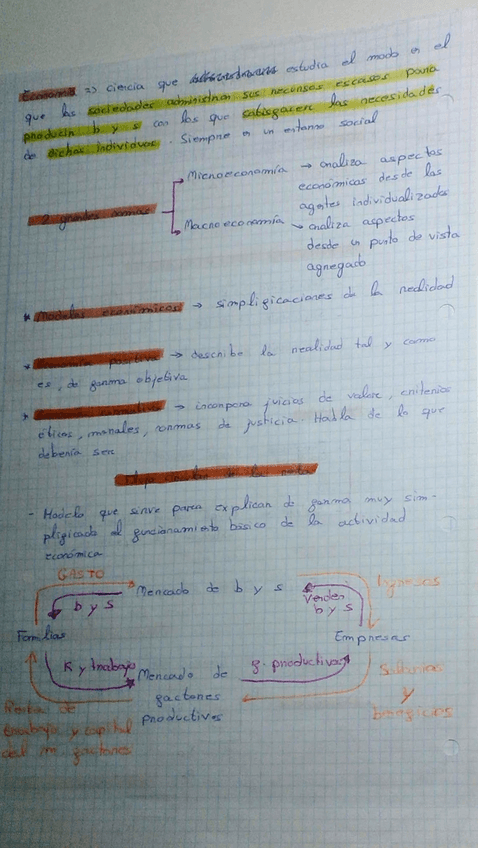 Economía => ciencia que estudia el modo en el
que las sociedades administran sus recursos escasos para
producir b y s con los que satisfacer las necesidades
de dichos individuos. Siempre en un entorno social
2 grandes ramas
Microeconomía → analiza aspectos
económicos desde las
agentes individualizados
Macroeconomía → analiza aspectos
desde un punto de vista
agregado
* Modelos económicos → simplificaciones de la realidad
* Economía positiva → describe la realidad tal y como
es, de forma objetiva
* Economía normativa → incorpora juicios de valor, criterios
éticos, morales, normas de justicia. Habla de lo que
debería ser
Flujo circular de la renta
- Modelo que sirve para explicar de forma muy sim-
plificado el funcionamiento básico de la actividad
económica
GASTO
Mercado de b y s
Ingresos
b y s
Venden
b y s
Familias
Empresas
K y trabajo
Mercado de
factores
productivos
f. productivos
Salarios
y
beneficios
Renta de
trabajo y capital
del m. factores